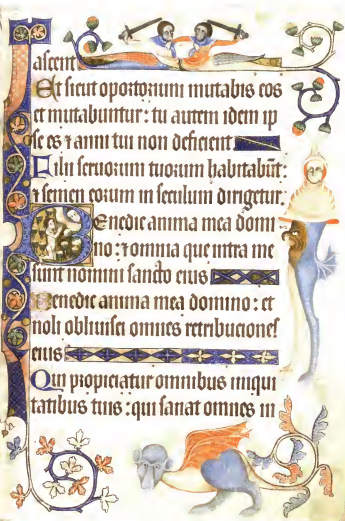 ascent
Et sicut opoztozium mutabis eos
et mutabuntur : tu autem idem ip
se es ⁊ anni tui non deficient
Filii seruozum tuozum habitabūt :
⁊ semen eozum in seculum dirigetur.
Benedic anima mea domi
no : ⁊ omnia que intra me
sunt nomini sancto eius
Benedic anima mea domino : et
noli obliuisci omnes retribuciones
eius
Qui propiciatur omnibus iniqui
tatibus tuis : qui sanat omnes in